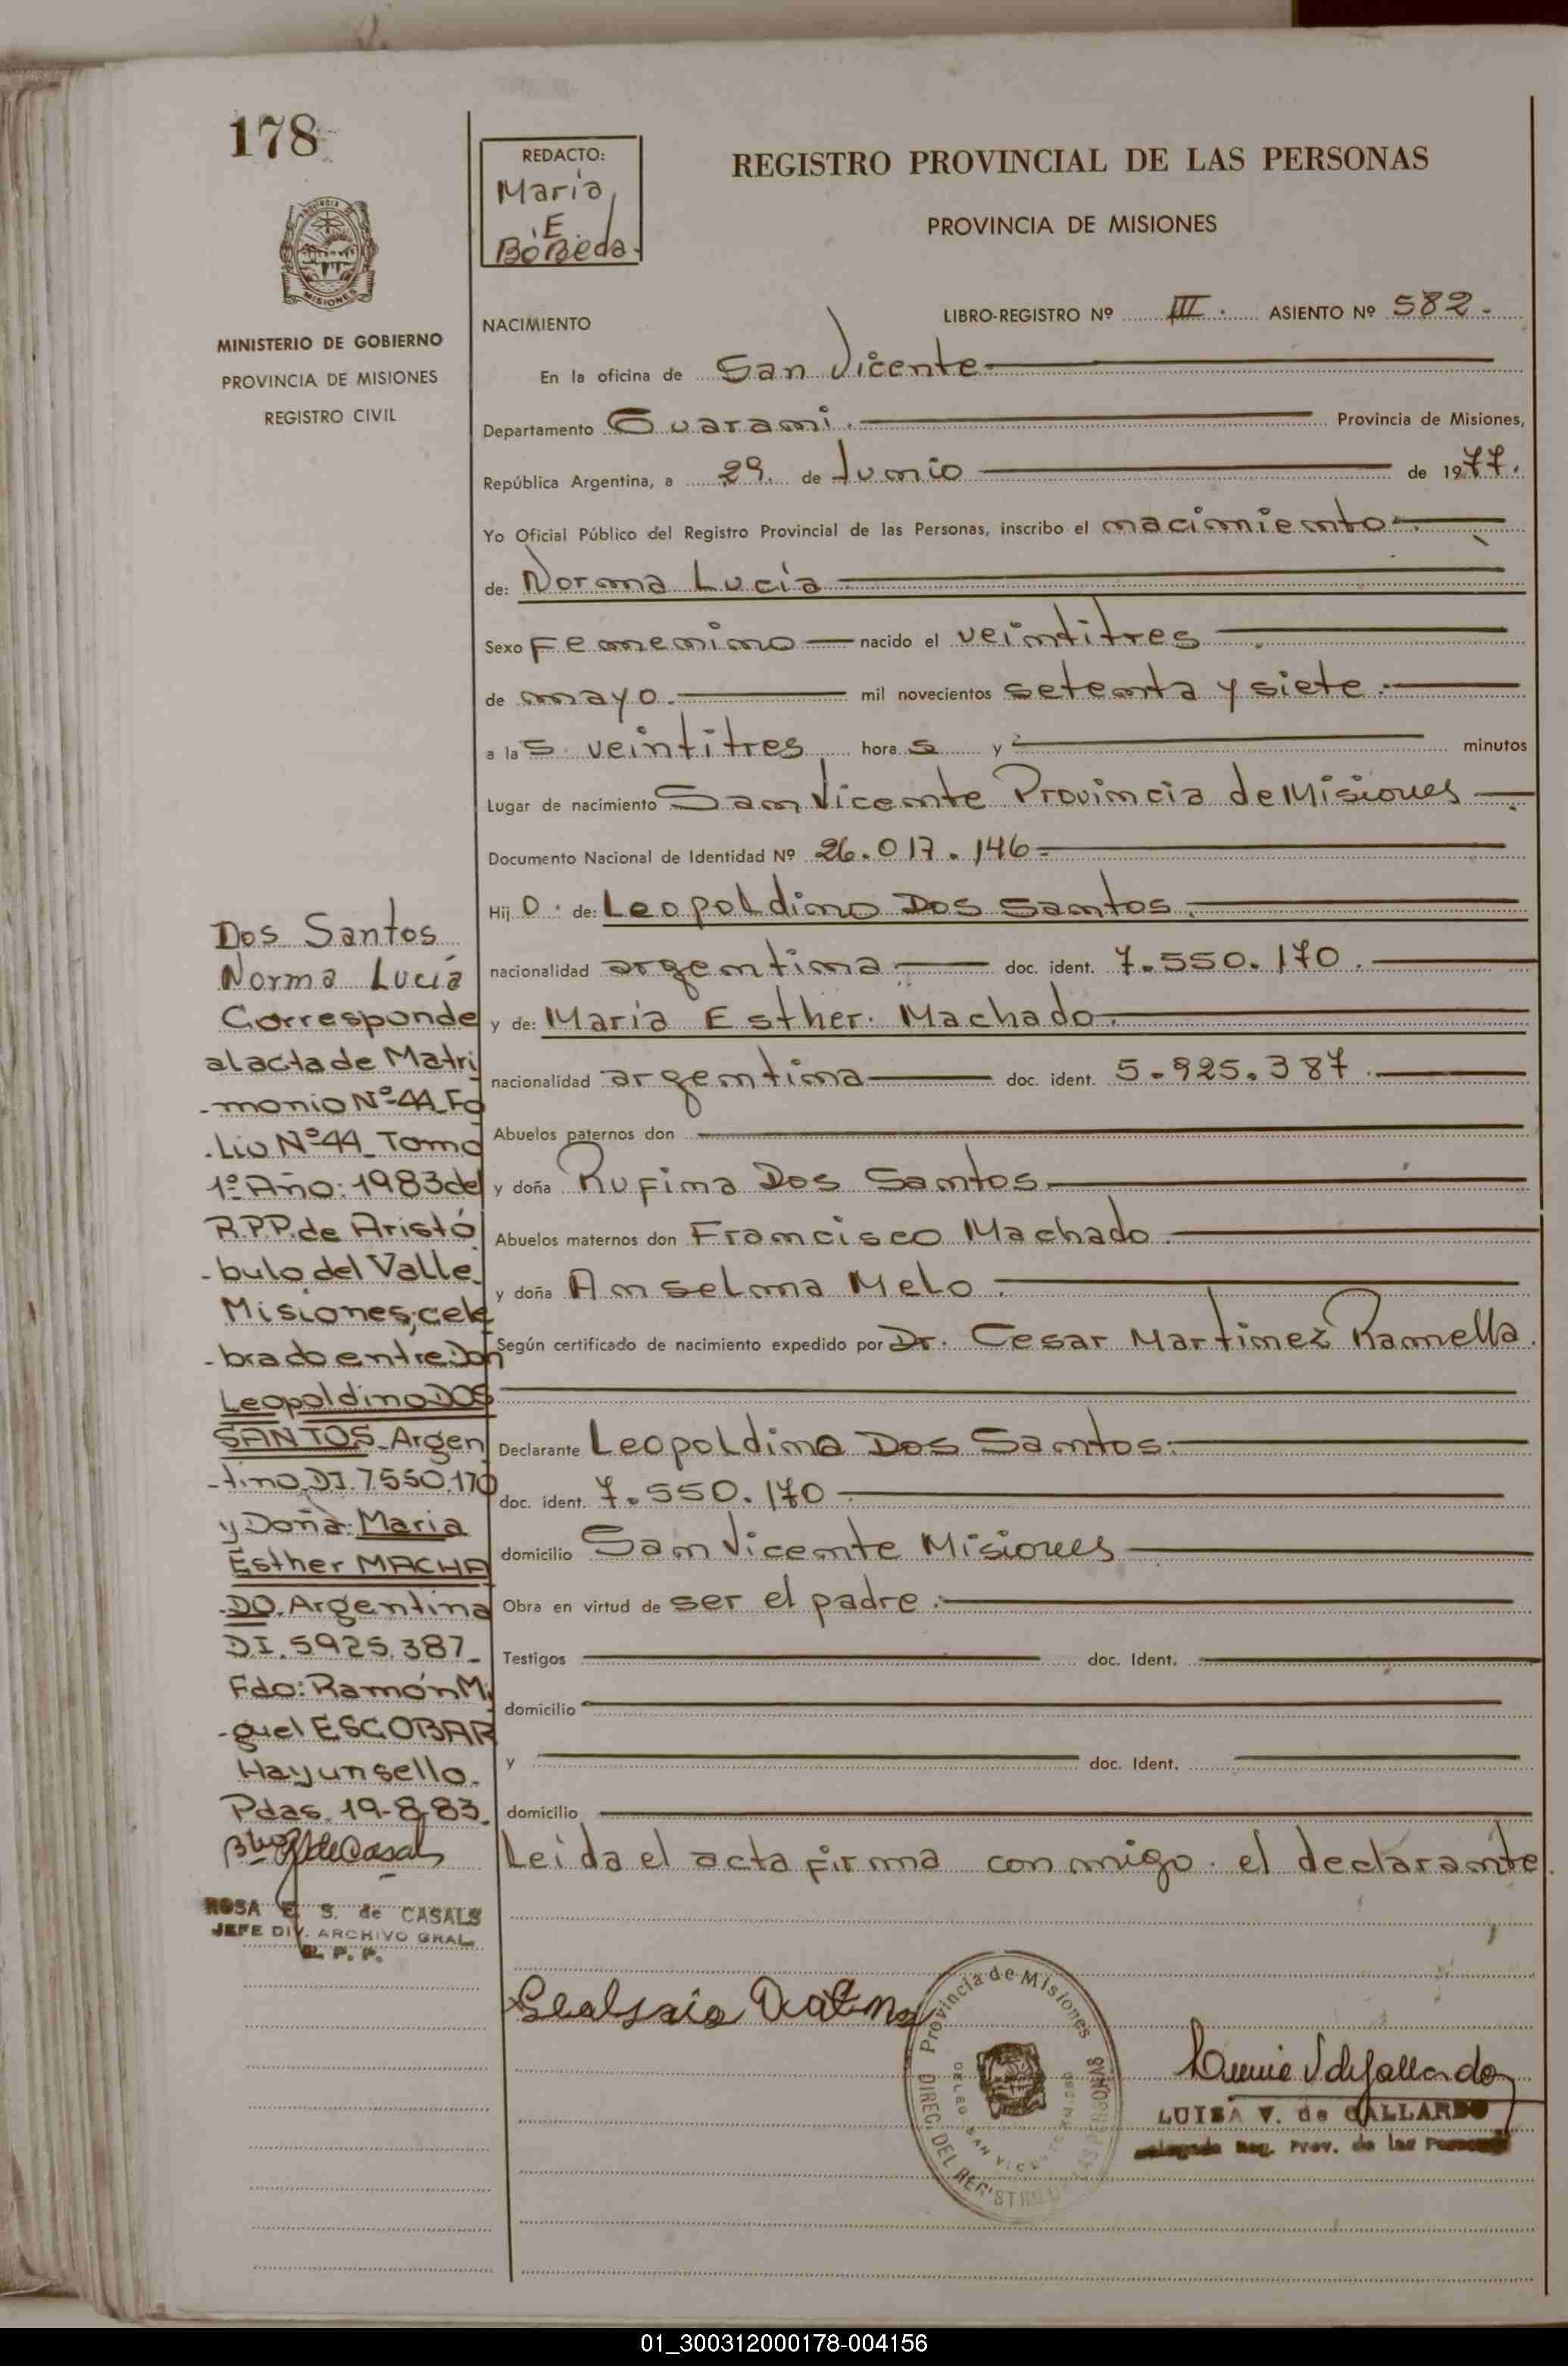 178
REDACTO:
Maria
E.
BoBeda.
REGISTRO PROVINCIAL DE LAS PERSONAS
PROVINCIA DE MISIONES
MISIONES
MINISTERIO DE GOBIERNO
PROVINCIA DE MISIONES
REGISTRO CIVIL
NACIMIENTO
LIBRO-REGISTRO Nº III. ASIENTO Nº 582.
En la oficina de San Vicente
Departamento Guarami. Provincia de Misiones,
República Argentina, a 29. de Junio de 1977.
Yo Oficial Público del Registro Provincial de las Personas, inscribo el nacimiento
de: Norma Lucía
Sexo Femenino nacido el veintitres
de mayo. mil novecientos setenta y siete.
a las veintitres horas y minutos
Lugar de nacimiento San Vicente Provincia de Misiones
Documento Nacional de Identidad Nº 26.017.146
Hij O. de: Leopoldino Dos Santos.
nacionalidad argentina doc. ident. 7.550.170.
y de: Maria Esther. Machado.
nacionalidad argentina doc. ident. 5.925.387.
Abuelos paternos don
y doña Rufina Dos Santos.
Abuelos maternos don Francisco Machado.
y doña Anselma Melo.
Según certificado de nacimiento expedido por Dr. Cesar Martinez Ramella.
Declarante Leopoldino Dos Santos.
doc. ident. 7.550.170
domicilio San Vicente Misiones
Obra en virtud de ser el padre.
Testigos doc. Ident.
domicilio
y doc. Ident.
domicilio
Leida el acta firma conmigo. el declarante.
Dos Santos
Norma Lucía
Corresponde
al acta de Matri
-monio Nº 44_Fo
.Lio Nº 44_Tomo
1º Año: 1983 del
R.P.P. de Aristó
-bulo del Valle.
Misiones; cele
-brado entre Don
Leopoldino DOS
SANTOS_Argen
-tino, DI. 7.550.170
y Doña: Maria
Esther MACHA
-DO. Argentina
D.I. 5.925.387_
Fdo: Ramón Mi
-guel ESCOBAR
Hay un sello.
Pdas. 19-8-83_
ROSA E. S. de CASALS
JEFE DIV. ARCHIVO GRAL.
R. P. P.
Provincia de Misiones
DIREC. DEL REGISTRO DE LAS PERSONAS
SAN VICENTE
LUISA V. de GALLARDO
Delegada Reg. Prov. de las Personas
01_300312000178-004156